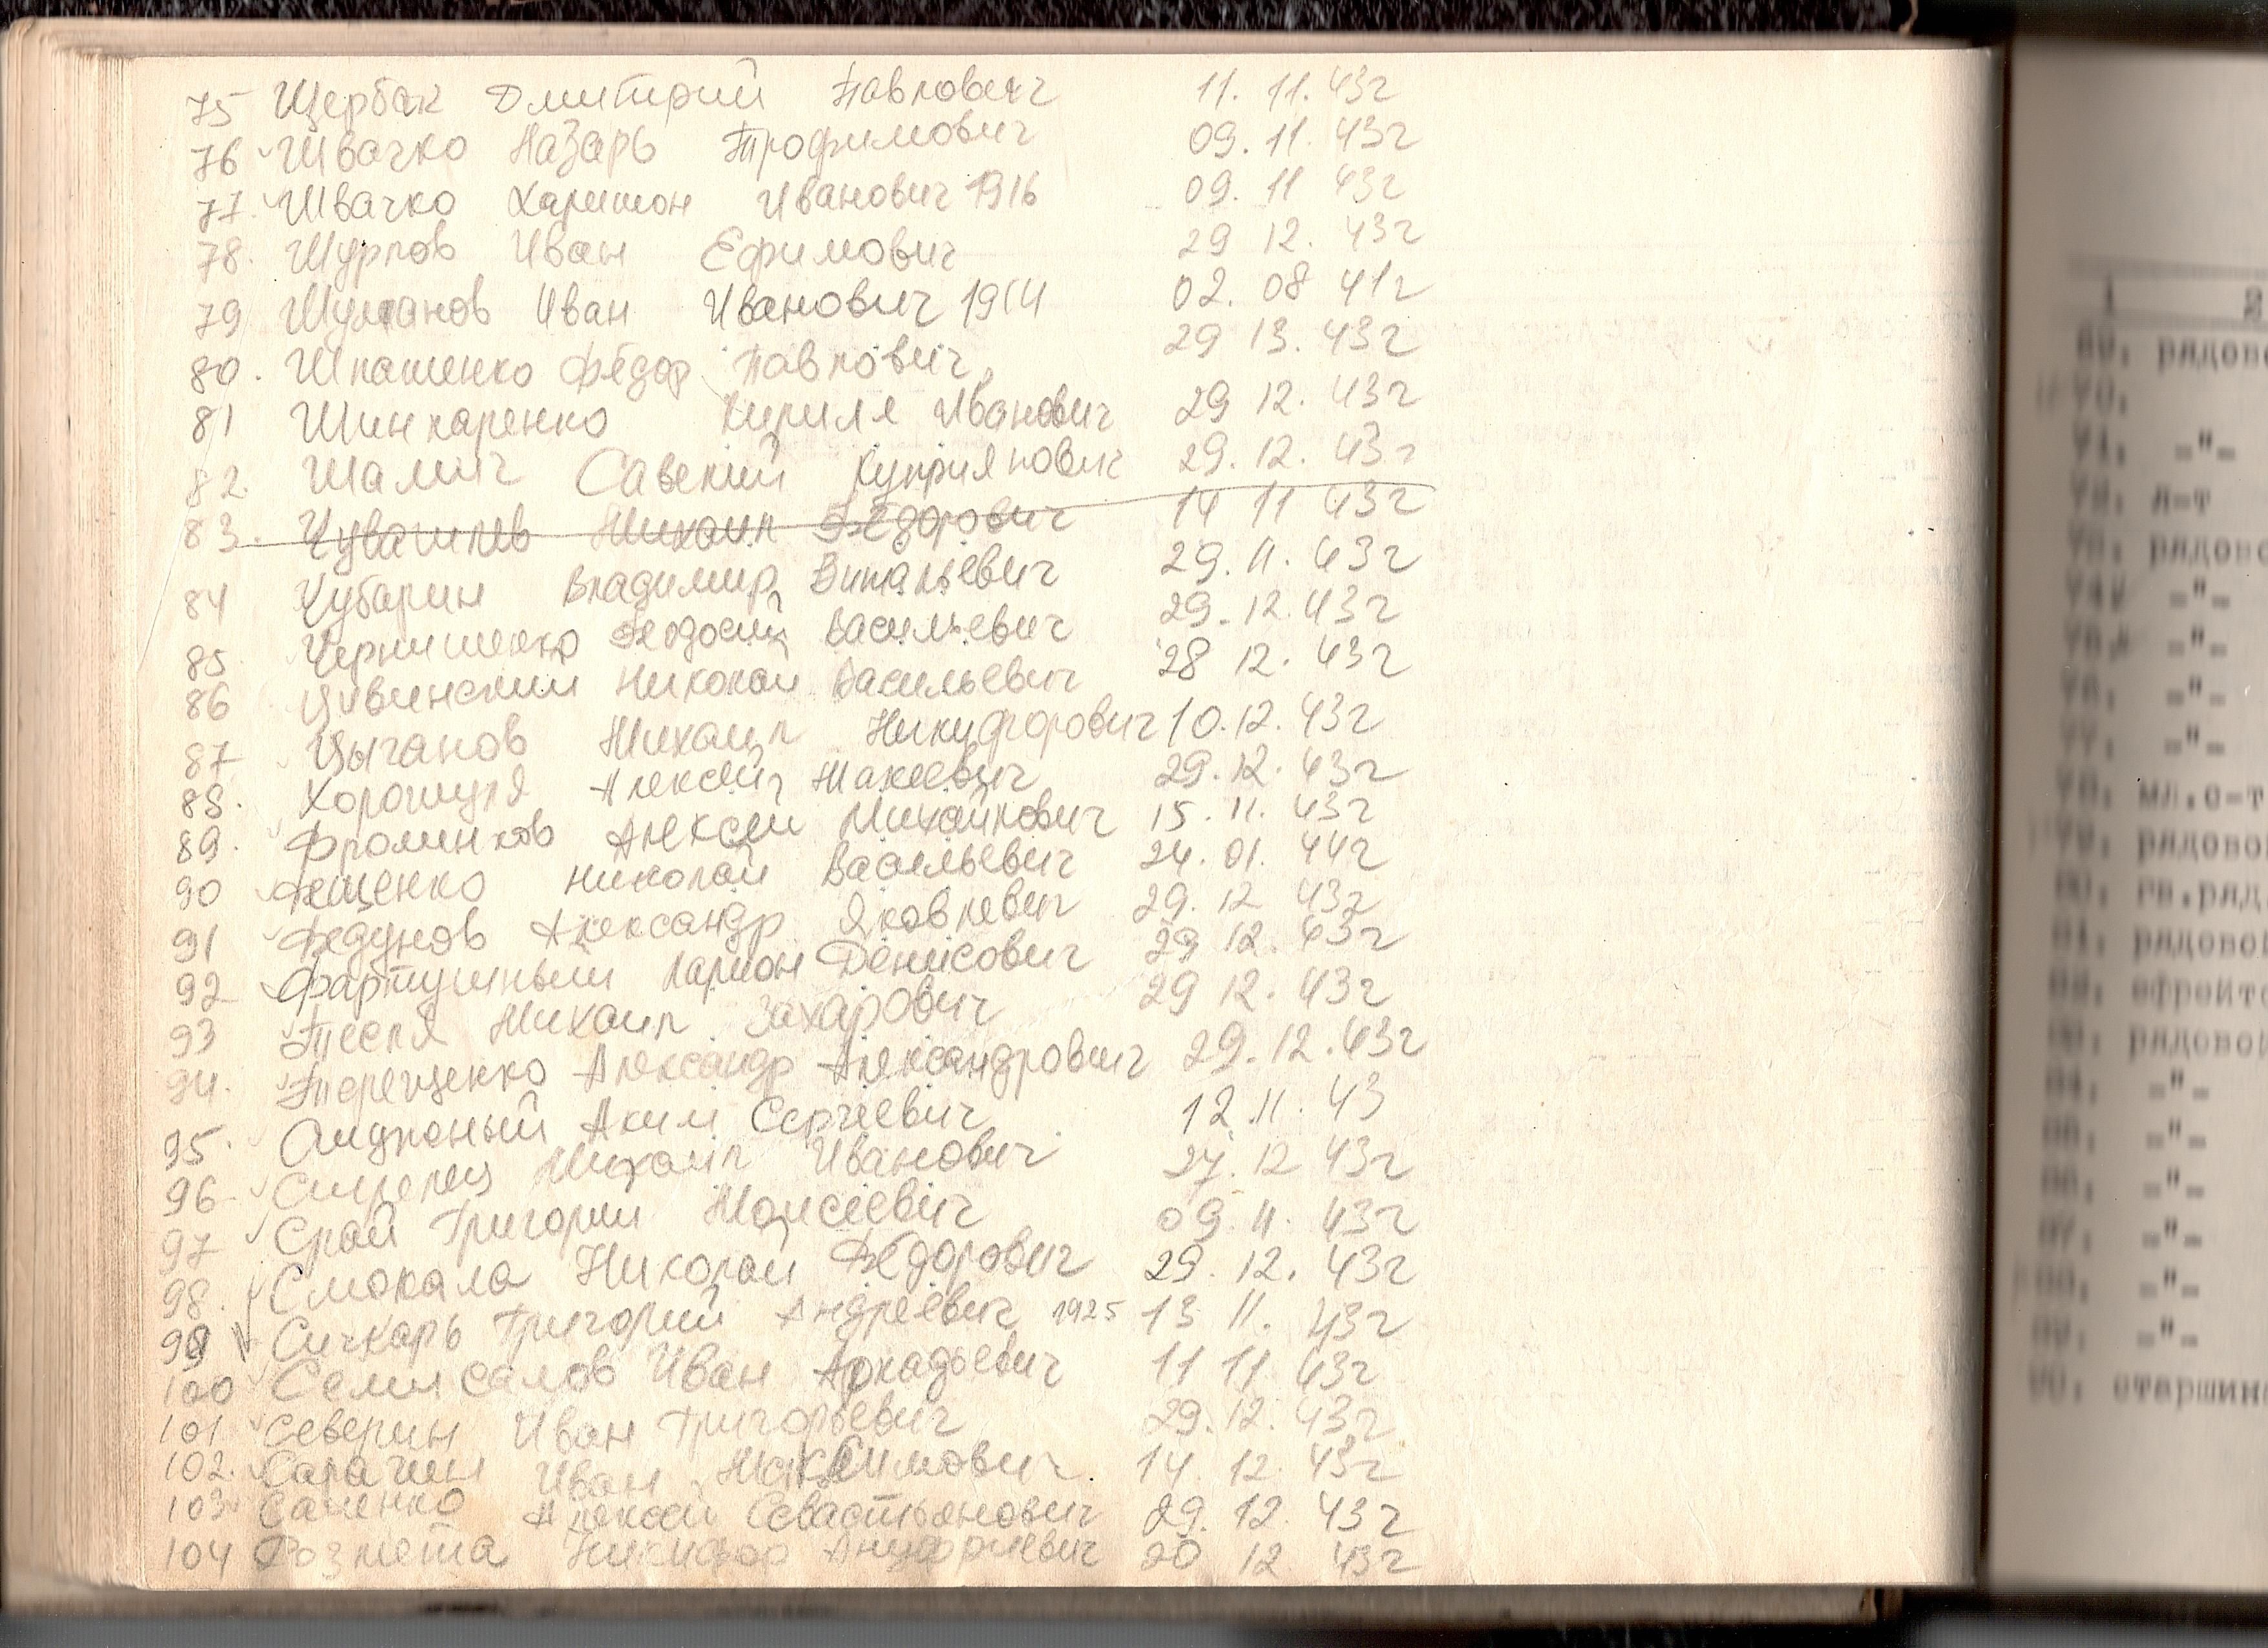 75 Щербак Дмитрий Павлович 11. 11. 43г
76 Швачко Назарь Трофимович 09. 11. 43г
77. Швачко Харитон Иванович 1916 09. 11 43г
78. Шурпов Иван Ефимович 29 12. 43г
79 Иван Иванович 1914 02. 08 41г
80. Шпашенко Фёдор Павлович 29 13. 43г
81 Шинкаренко Кирилл Иванович 29 12. 43г
82. Шамич Савекий Куприянович 29. 12. 43г
83. Чувашлев Михаил Фёдорович 14 11 43г
84 Чубарин Владимир Витальевич 29. 11. 43г
85 Чернишенко Феодосий Васильевич 29. 12. 43г
86 Цивинский Николай Васильевич 28 12. 43г
87 Цыганов Михаил Никуфорович 10. 12. 43г
88. Хорошуля Алексей Макеевич 29. 12. 43г
89. Фроминков Алексей Михайлович 15. 11. 43г
90 Фещенко Николай Васильевич 24. 01. 44г
91 Федунов Александр Яковлевич 29. 12 43г
92 Фартушный Ларион Денисович 29 12. 43г
93 Тесля Михаил Захарович 29 12. 43г
94. Терещенко Александр Александрович 29. 12. 43г
95. Аким Сергеевич 12. 11. 43
96 Михаил Иванович 27. 12 43г
97 Срай Григорий Моисеевич 09. 11. 43г
98. Смокала Николай Фёдорович 29. 12. 43г
99 Сичкарь Григорий Андреевич 1925 13 11. 43г
100 Семисалов Иван Аркадьевич 11 11 43г
101. Северин Иван Григорьевич 29. 12. 43г
102. Сарачин Иван Максимович 14. 12. 43г
103 Саченко Алексей Севастьянович 29. 12. 43г
104 Розмета Никифор Ануфриевич 20 12. 43г
1 2
рядово
70.
71. -"-
72. л-т
рядово
-"-
-"-
-"-
77. -"-
78. мл.с-т
79. рядовой
80. гв.ряд.
81. рядовой
82. ефрейто
рядовой
84. -"-
-"-
86. -"-
87. -"-
-"-
-"-
90. старшин